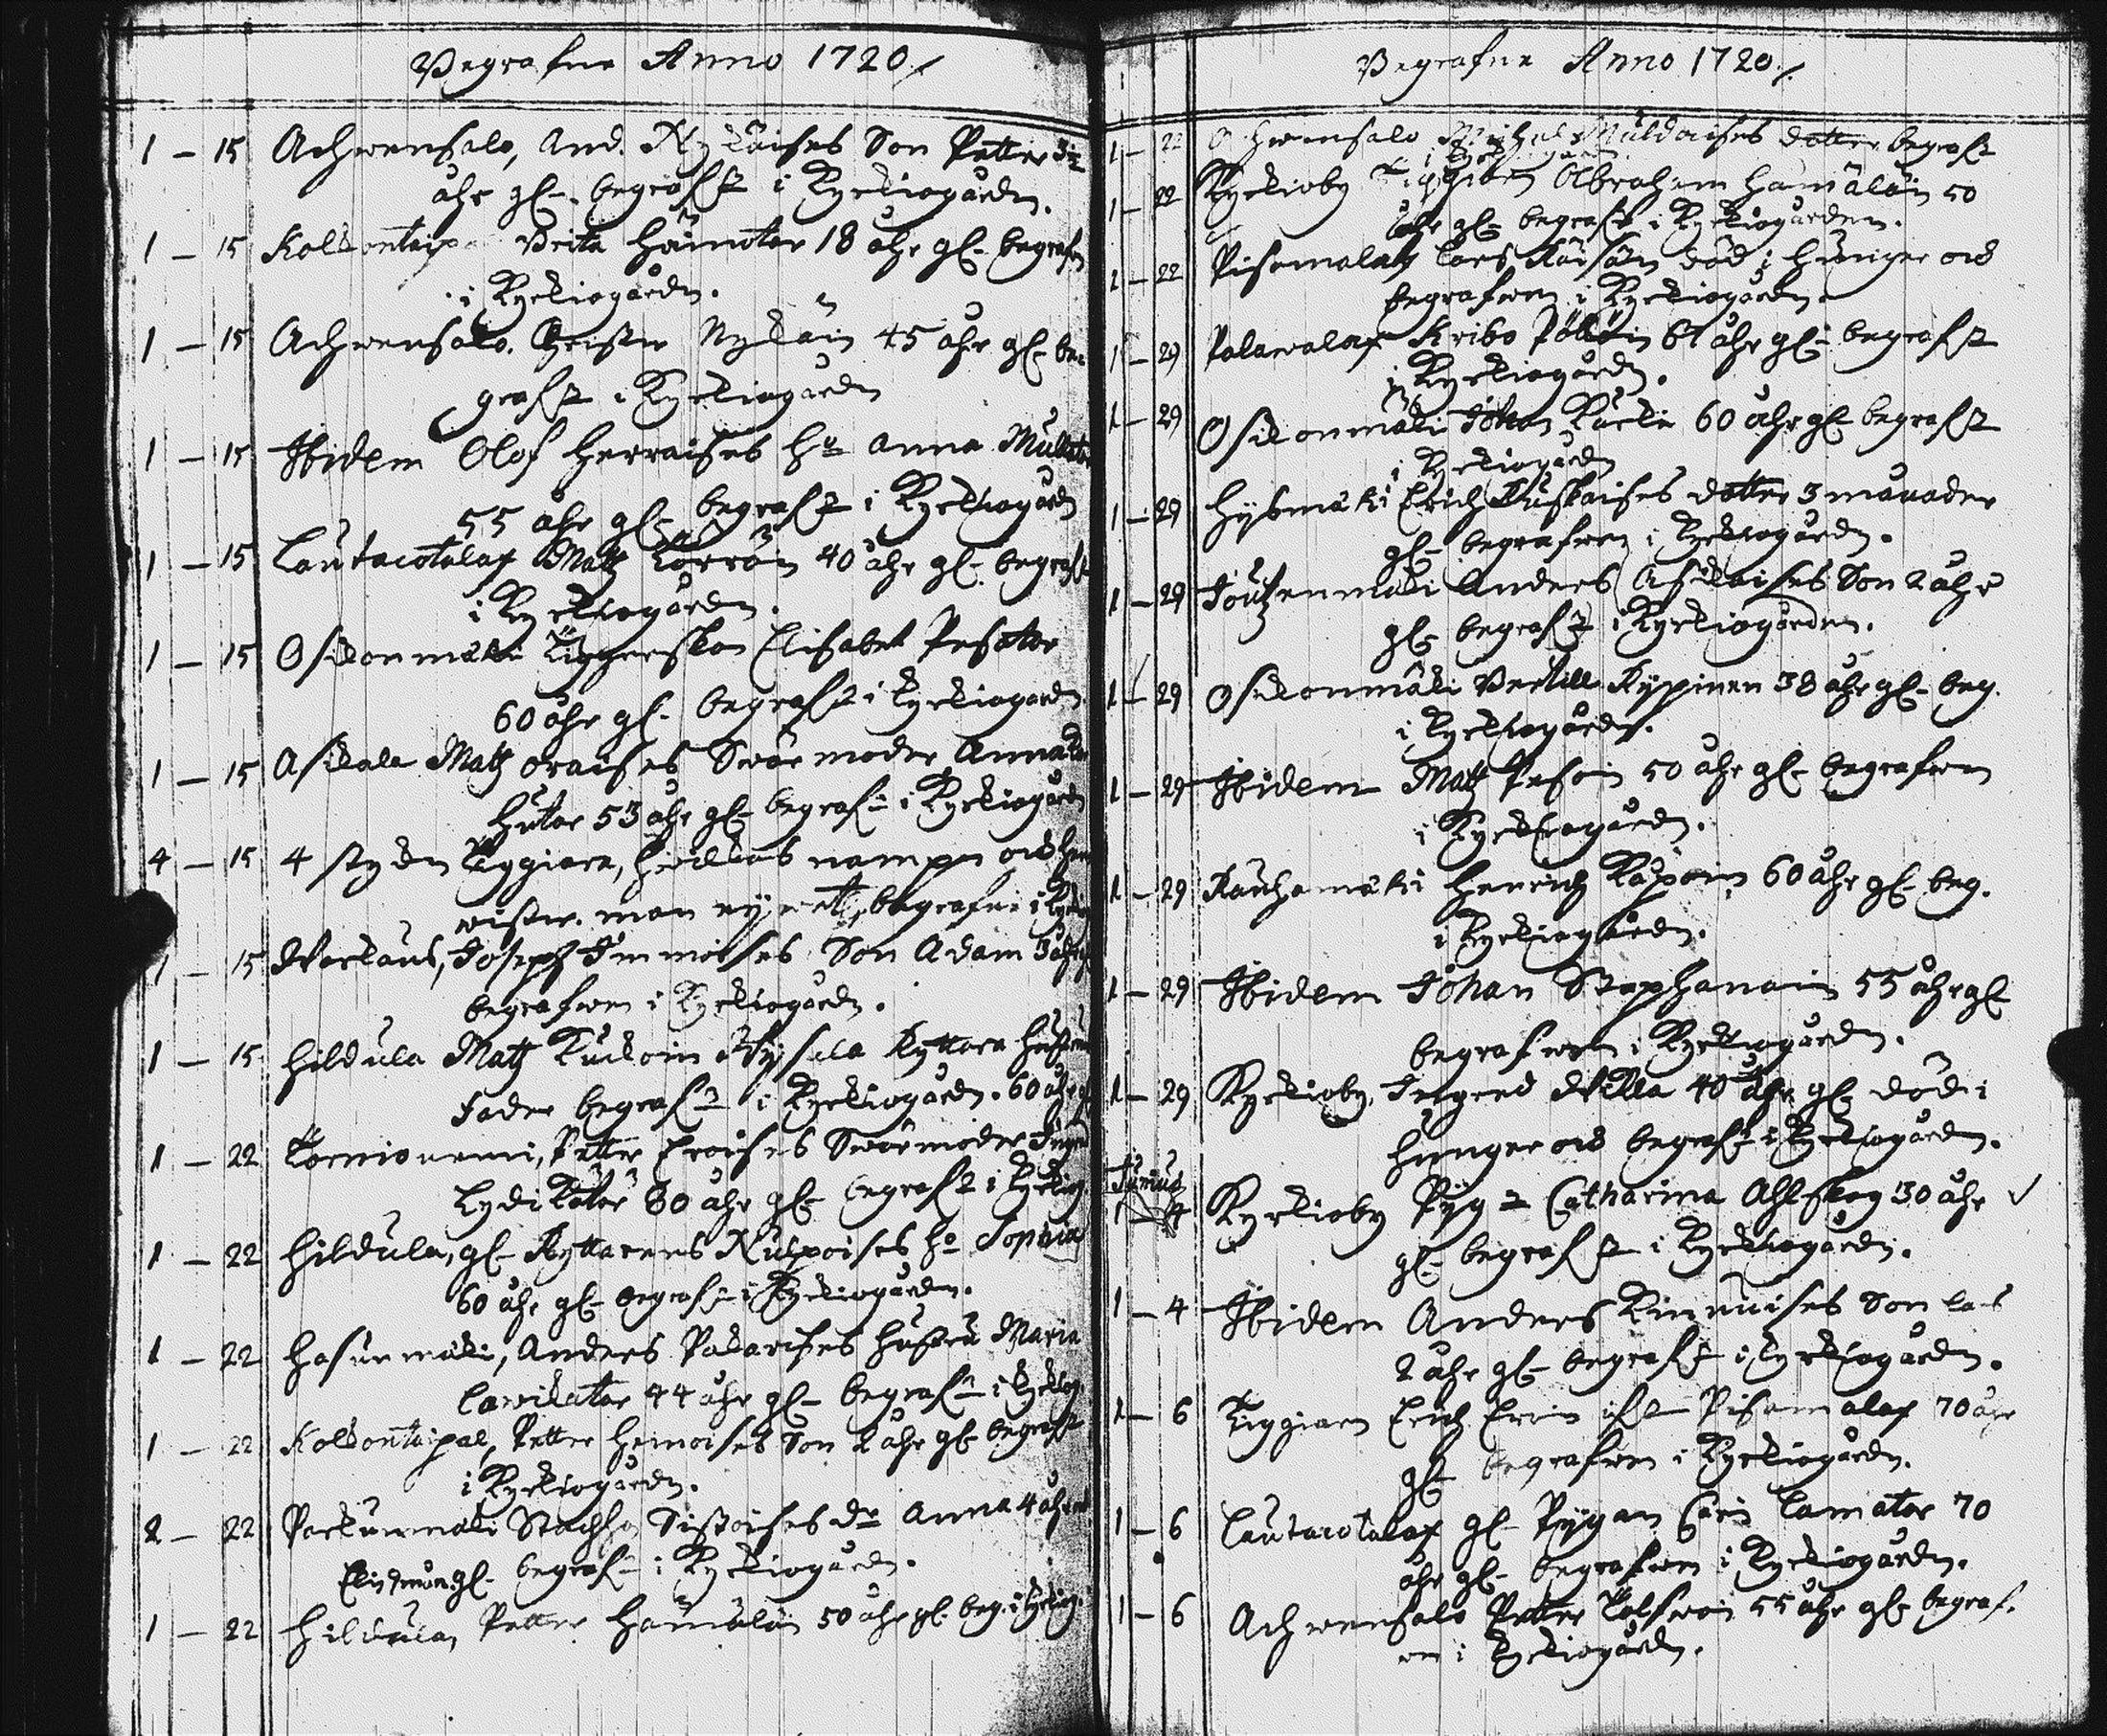 Begrafne Anno 1720
1 - 15 Achwensalo, And. Nykäises Son Petter 3½
åhr gl. begrafn i Kyrkiogården.
1 - 15 Kolkontaipal Brita Häinotar 18 åhr gl. begrafn
i Kyrkiogården.
1 - 15 Achwensalo. Christer Nykäin 45 åhr gl. be-
grafn i Kyrkiogården
1 - 15 Ibidem Olof Herraises ho Anna
55 åhr gl. begrafn i Kyrkiogård
1 - 15 Lautacotalax Matz Korroin 40 åhr gl. begrafn
i Kyrkiogården.
1 - 15 Osikonmäki Tiggerskan Elisabet Pesotar
60 åhr gl. begrafn i Kyrkiogården
1 - 15 Asikala Matz oraises Swärmoder Anna
53 åhr gl. begrafn i Kyrkiogård
4 - 15 4 stycken Tiggiare, hwilkas nampn och
wister. man ey wet, begrafne i
1 - 15 Warkaus, Joseph Immoises Son Adam 3 åhr
begrafwen i Kyrkiogården.
1 - 15 Hildula Matz Kuckoin Ryttare
Fader begrafn i Kyrkiogården. 60 åhr
1 - 22 Tornioniemi, Petter Eroises Swärmoder
80 åhr gl. begrafn i Kyrkiog
1 - 22 Hildula, gl. Ryttarens Kulpoises ho Sophia
60 åhr gl. begrafn i Kyrkiogården.
1 - 22 Hasunmäki, Anders Pakarises Hustru Maria
Lawikatar 44 åhr gl. begrafn i Kyrkiog.
1 - 22 Kolkontaipal, Petter Hemoises Son 2 åhr gl. begrafn
i Kyrkiogården.
2 - 22 Parkunmäki Staffan Sistoises dr Anna 4 åhr
Elin 9 mån gl. begrafn i Kyrkiogården.
1 - 22 Hildula, Petter Hämäläin 50 åhr gl. beg. i Kyrkiog.
Begrafne Anno 1720
1 - 22 Achwensalo Michel Muldaises dotter begrafn
i Kyrkiogården
1 - 22 Kyrkioby Tiggiaren Abraham Hämäläin 50
åhr gl. begrafn i Kyrkiogården.
1 - 22 Pisamalax Lars Käisäin död i hunger och
begrafwen i Kyrkiogården.
1 - 29 Palawalax Kribo Pölläin 61 åhr gl. begrafn
i Kyrkiogården.
1 - 29 Osikonmäki Johan Karki 60 åhr gl. begrafn
i Kyrkiogården
1 - 29 Hysmäki Erich Ruskaises dotter 3 månader
gl. begrafwen i Kyrkiogården.
1 - 29 Joutzenmäki Anders Asikaises Son 2 åhr
gl. begrafn i Kyrkiogården.
1 - 29 Osikonmäki Bertill Rypinen 38 åhr gl. beg.
i Kyrkiogården.
1 - 29 Ibidem Matz Pesoin 50 åhr gl. begrafwen
i Kyrkiogården.
1 - 29 Rauhamäki Henrich Käpoin 60 åhr gl. beg.
i Kyrkiogården.
1 - 29 Ibidem Johan Stephanain 55 åhr gl.
begrafwen i Kyrkiogården.
1 - 29 Kyrkioby, Ingeed Willa 40 åhr gl. död i
hunger och begrafn i Kyrkiogården.
Junius
1 - 4 Kyrkioby Pyg - Catharina Ahlskog 30 åhr
gl. begrafn i Kyrkiogården.
1 - 4 Ibidem Anders Kinnuises Son Lars
2 åhr gl. begrafn i Kyrkiogården.
1 - 6 Tiggiaren Erich Eroin ifrån Pisamalax 70 åhr
gl. begrafwen i Kyrkiogården.
1 - 6 Lautacotalax gl. Pygan Carin Lamatar 70
åhr gl. begrafwen i Kyrkiogården.
1 - 6 Achwensalo Petter Tolfwain 55 åhr gl. begraf.
en i Kyrkiogården.